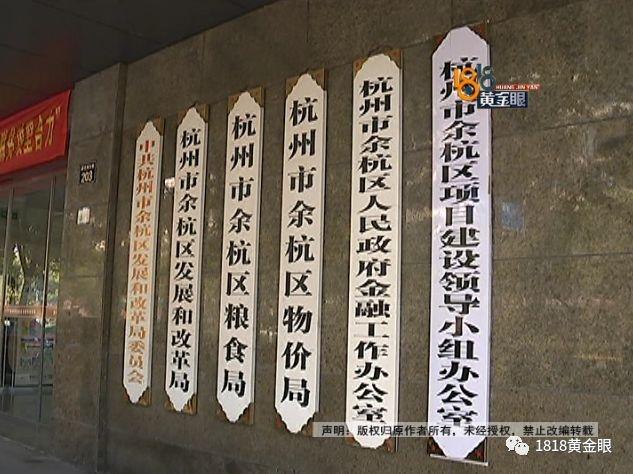 203
中共杭州市余杭区发展和改革局委员会
杭州市余杭区发展和改革局
杭州市余杭区粮食局
杭州市余杭区物价局
杭州市余杭区人民政府金融工作办公室
杭州市余杭区项目建设领导小组办公室
1818
HUANG JIN YAN
黄金眼
声明：版权归原作者所有，未经授权，禁止改编转载
1818黄金眼